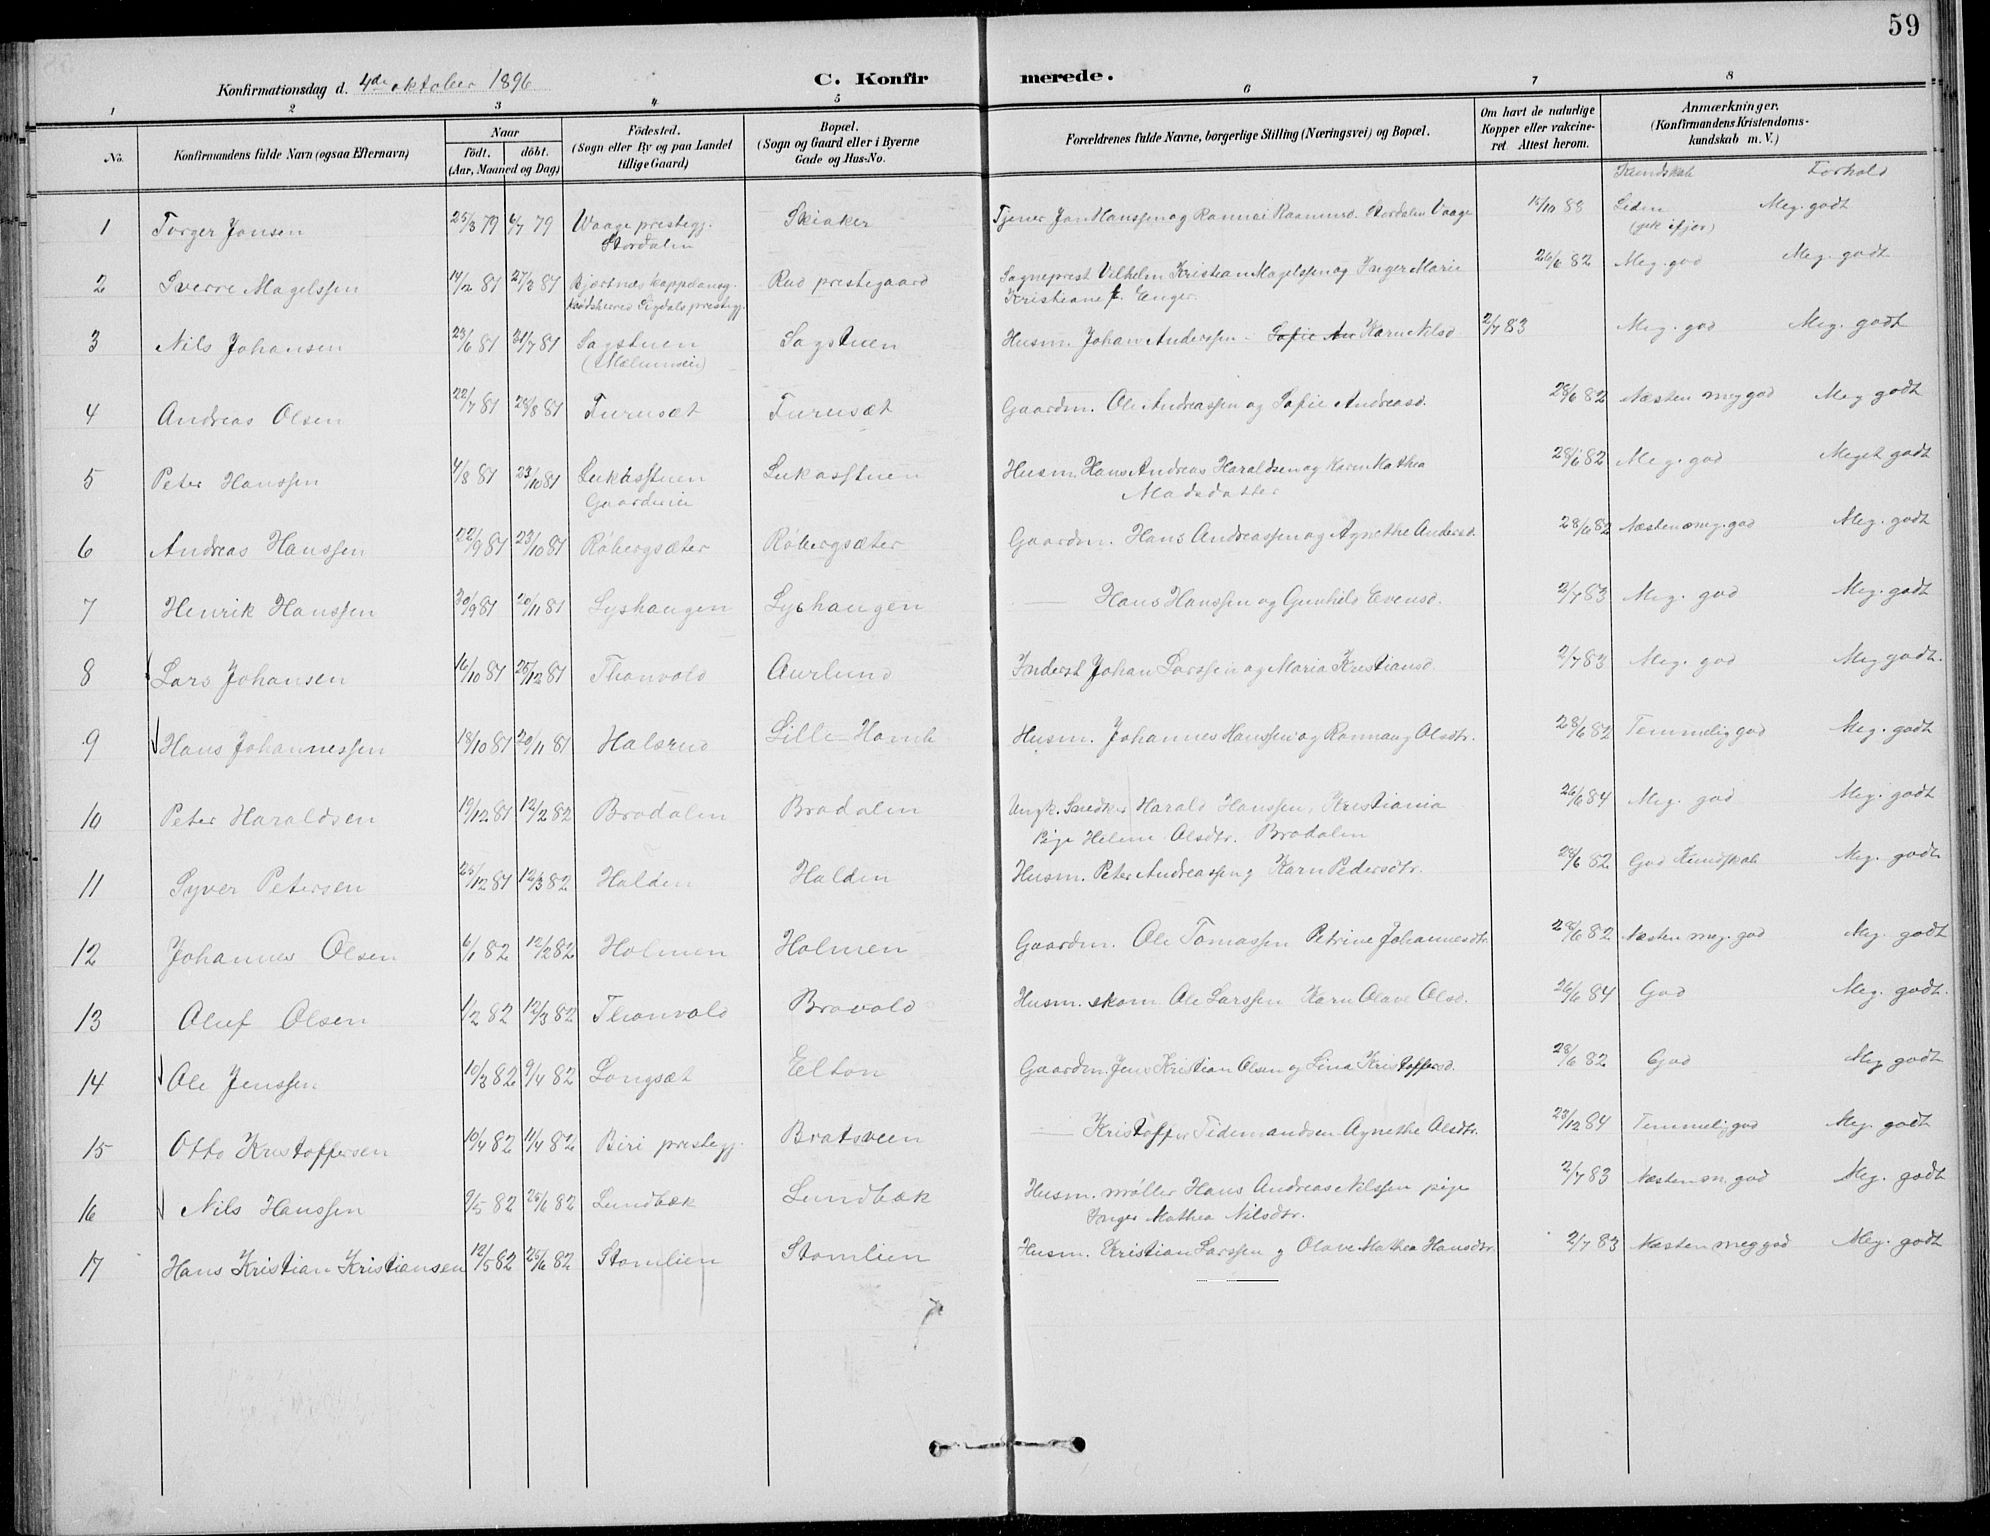 59
Konfirmationsdag d. 4de oktober 1896
C. Konfirmerede.
1 2 3 4 5 6 7 8
No.
Konfirmandens fulde Navn (ogsaa Efternavn)
Naar
født. døbt.
(Aar, Maaned og Dag)
Fødested.
(Sogn eller By og paa Landet
tillige Gaard)
Bopæl.
(Sogn og Gaard eller i Byerne
Gade og Hus-No.
Forældrenes fulde Navne, borgerlige Stilling (Næringsvei) og Bopæl.
Om havt de naturlige
Kopper eller vakcine-
ret. Attest herom.
Anmærkninger.
(Konfirmandens Kristendoms-
kundskab m. V.)
Kundskab Forhold
1 Torger Jonsen 25/3 79 6/7 79 Waage prestegj. Skiaker Tjener Jon Hanssen og Rannei Raamund. Stordalen Vaage 15/10 88 Liden Meg. godt
Stordalen
2 Sverre Magelssen 14/2 81 27/3 81 Bjertnæs kappelansg. Rud prestegaard Sogneprest Vilhelm Kristian Magelssen og Inger Marie 26/6 82 Meg. god Meg. godt
Krødsherred Sigdals prestegj. Kristiane f. Enger.
3 Nils Johansen 23/6 81 31/7 81 Sagstuen Sagstuen Husm. Johan Anderssen - Sofie An Karn Nilsd 2/7 83 Meg. god Meg. godt
4 Andreas Olsen 22/7 81 28/8 81 Furusæt Furusæt Gaardm. Ole Andreassen og Sofie Andreasd. 28/6 82 Næsten meg god Meg godt
5 Peter Hanssen 4/8 81 23/10 81 Lukasstuen Lukasstuen Husm. Hans Andreas Haraldsen og Karen Mathea 28/6 82 Meg. god Meget godt
Madsdatter
6 Andreas Hanssen 22/9 81 23/10 81 Røbergsæter Røbergsæter Gaardm. Hans Andreassen og Agnethe Andersd. 28/6 82 Næsten meg. god Meg. godt
7 Henrik Hanssen 30/9 81 20/11 81 Lyshaugen Lyshaugen — Hans Hanssen og Gunhild Evensd. 2/7 83 Meg. god Meg. godt
8 Lars Johansen 16/10 81 26/12 81 Thonvold Aurlund Inderst Johan Larssen og Maria Kristiansd. 2/7 83 Meg. god Meg godt.
9 Hans Johannessen 18/10 81 20/11 81 Halsrud Lille-Homb Husm. Johannes Hanssen og Rannaug Olsdtr. 28/6 82 Temmelig god Meg. godt
10 Peter Haraldsen 19/12 81 12/2 82 Bradalen Bradalen Ungk. Snedker Harald Hanssen, Kristiania 26/6 84 Meg. god Meg. godt
Pige Helene Olsdtr. Bradalen
11 Syver Petersen 25/12 81 12/3 82 Halden Halden Husm. Peter Andreassen g Karn Pedersdtr. 28/6 82 God Kundskab Meg. godt
12 Johannes Olsen 6/1 82 12/2 82 Holmen Holmen Gaardm. Ole Tomassen Petrine Johannesdtr. 28/6 82 Næsten meg. god Meg. godt
13 Oluf Olsen 1/2 82 12/3 82 Thonvold Bravold Husm. skom. Ole Larssen Karn Olave Olsd. 26/6 84 God Meg. godt.
14 Ole Jenssen 10/3 82 9/4 82 Longsæt Elton Gaardm. Jens Kristian Olsen og Lina Kristoffersd. 28/6 82 God Meg godt
15 Otto Kristoffersen 10/4 82 11/4 82 Biri prestegj. Bratsveen — Kristoffer Tidemandsen Agnethe Olsdtr. 23/12 84 Temmelig god Meg. godt
16 Nils Hanssen 9/5 82 25/6 82 Lundbæk Lundbæk Husm. møller Hans Andreas Nilssen pige 2/7 83 Næsten m. god Meg. godt
Inger Mathea Nilsdtr.
17 Hans Kristian Kristiansen 12/5 82 25/6 82 Stomlien Stomlien Husm. Kristian Larssen g Olave Mathea Hansdtr. 2/7 83 Næsten meg god Meg. godt